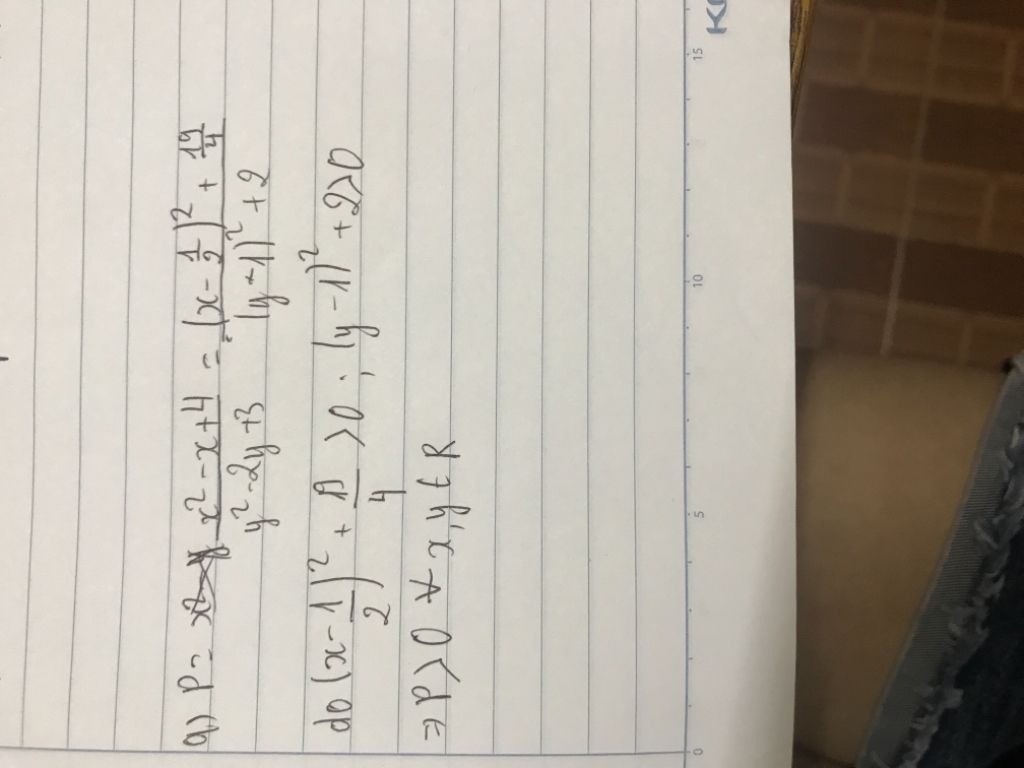 a) P = x² - x + 4 / y² - 2y + 3 = (x - 1/2)² + 19/4 / (y - 1)² + 2
do (x - 1/2)² + 19/4 > 0 ; (y - 1)² + 2 > 0
=> P > 0 ∀ x, y ∈ R
0 5 10 15